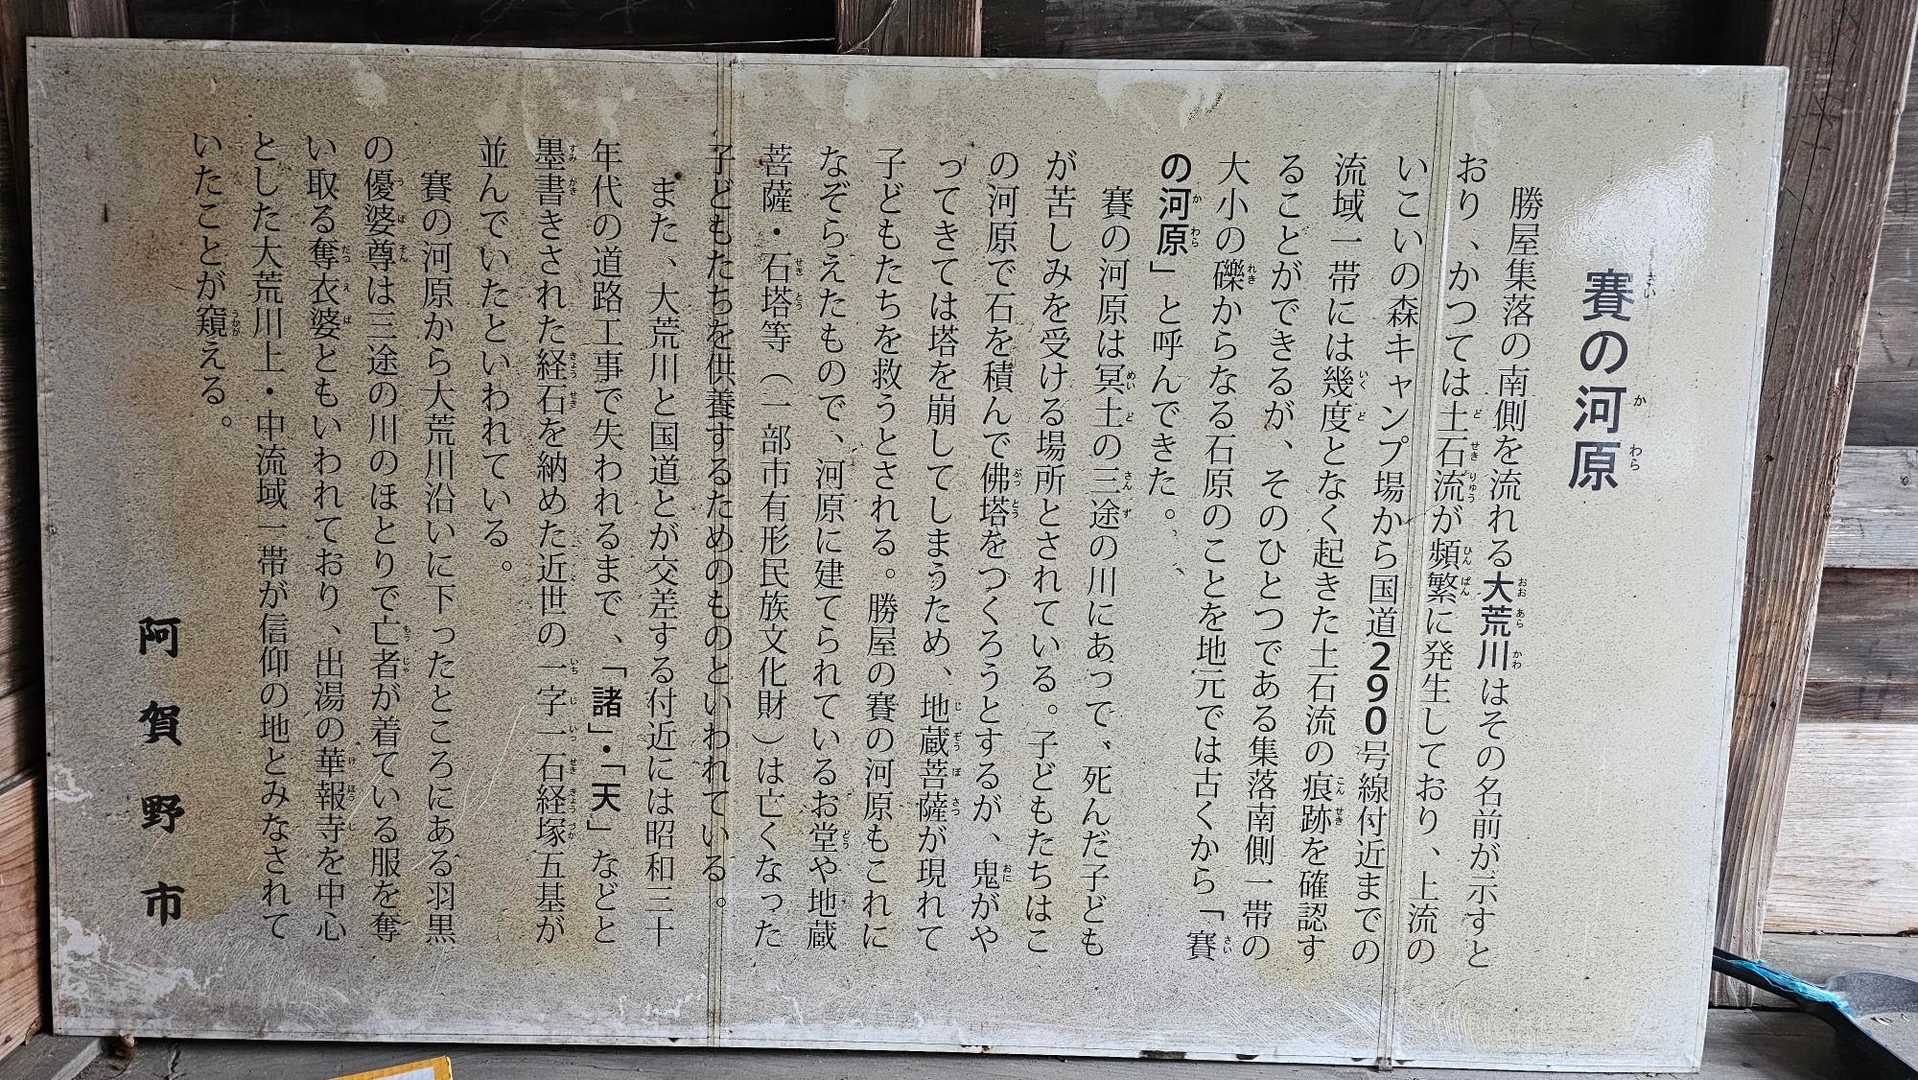 賽の河原
勝屋集落の南側を流れる大荒川はその名前が示すと
おり、かつては土石流が頻繁に発生しており、上流の
いこいの森キャンプ場から国道290号線付近までの
流域一帯には幾度となく起きた土石流の痕跡を確認す
ることができるが、そのひとつである集落南側一帯の
大小の礫からなる石原のことを地元では古くから「賽
の河原」と呼んできた。
賽の河原は冥土の三途の川にあって、死んだ子ども
が苦しみを受ける場所とされている。子どもたちはこ
の河原で石を積んで佛塔をつくろうとするが、鬼がや
ってきては塔を崩してしまうため、地蔵菩薩が現れて
子どもたちを救うとされる。勝屋の賽の河原もこれに
なぞらえたもので、河原に建てられているお堂や地蔵
菩薩・石塔等（一部市有形民族文化財）は亡くなった
子どもたちを供養するためのものといわれている。
また、大荒川と国道とが交差する付近には昭和三十
年代の道路工事で失われるまで、「諸」・「天」などと
墨書きされた経石を納めた近世の一字一石経塚五基が
並んでいたといわれている。
賽の河原から大荒川沿いに下ったところにある羽黒
の優婆尊は三途の川のほとりで亡者が着ている服を奪
い取る奪衣婆ともいわれており、出湯の華報寺を中心
とした大荒川上・中流域一帯が信仰の地とみなされて
いたことが窺える。
阿賀野市